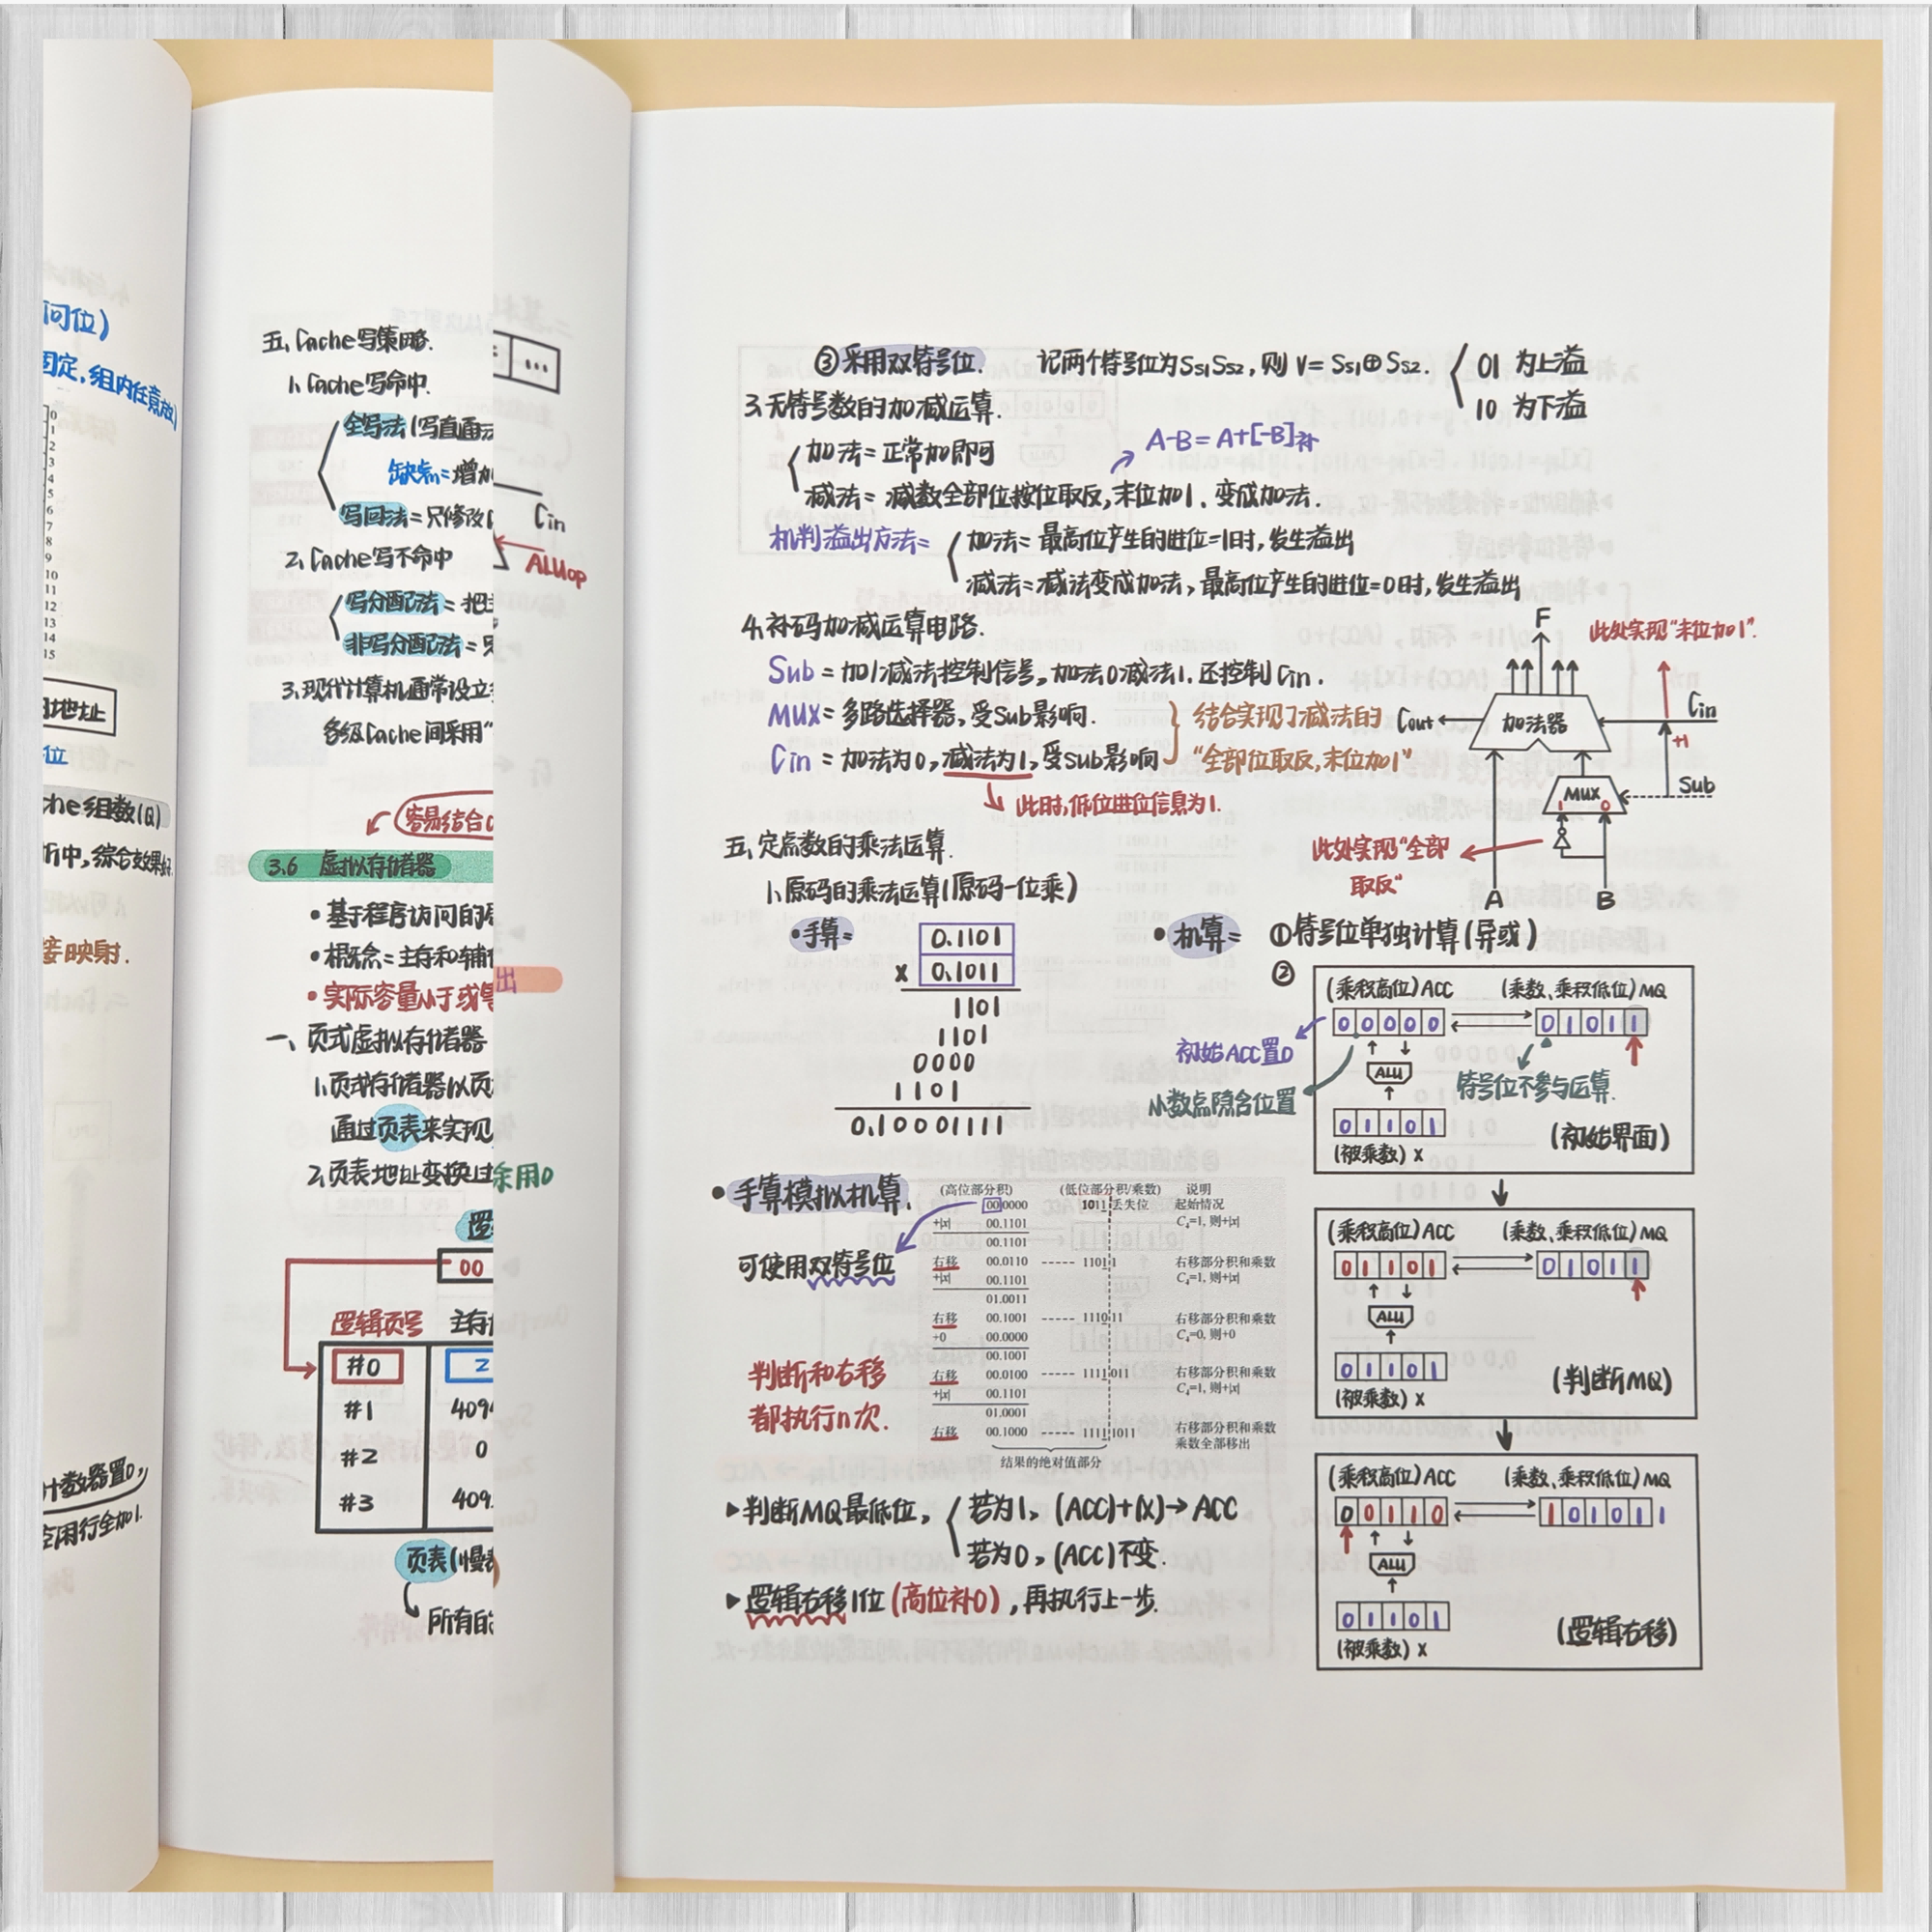 问位)
固定,组内任意放)
0
1
2
3
4
5
6
7
8
9
10
11
12
13
14
15
地址
位
che组数(Q)
折中,综合效果好.
接映射.
计数器置0,
空闲行全加1.
五、Cache写策略.
1.Cache写命中.
全写法(写直通法
缺点=增加
写回法=只修改C
2.Cache写不命中
写分配法=把主
非写分配法=只
3.现代计算机通常设立多
各级Cache间采用“
容易结合C
3.6 虚拟存储器
•基于程序访问的局
•概念=主存和辅存
•实际容量小于或等
一、页式虚拟存储器
1.页式存储器以页
通过页表来实现
2.页表地址变换过
逻
00
逻辑页号 主存
#0 2
#1 409
#2 0
#3 409
页表(慢表
所有的
...
Cin
ALUop
出
采用0
③采用双符号位. 记两个符号位为Ss1Ss2,则 V=Ss1⊕Ss2. 01 为上溢
10 为下溢
3.无符号数的加减运算.
加法=正常加即可
A-B=A+[-B]补
减法=减数全部位按位取反,末位加1.变成加法.
机判溢出方法= 加法=最高位产生的进位=1时,发生溢出
减法=减法变成加法,最高位产生的进位=0时,发生溢出
4.补码加减运算电路.
Sub=加/减法控制信号,加法0减法1.还控制Cin.
MUX=多路选择器,受Sub影响.
Cin=加法为0,减法为1,受Sub影响
结合实现了减法的
“全部位取反,末位加1”
此时,低位进位信息为1.
F
此处实现“末位加1”.
Cout 加法器 Cin
+1
MUX Sub
1 0
此处实现“全部
取反”
A B
五、定点数的乘法运算.
1.原码的乘法运算(原码一位乘)
•手算=
0.1101
x 0.1011
1101
1101
0000
1101
0.10001111
•机算= ①符号位单独计算(异或)
②
(乘积高位)ACC (乘数、乘积低位)MQ
0 0 0 0 0 0 1 0 1 1
初始ACC置0
ALU
符号位不参与运算.
小数点隐含位置
0 1 1 0 1
(被乘数)x
(初始界面)
(乘积高位)ACC (乘数、乘积低位)MQ
0 1 1 0 1 0 1 0 1 1
ALU
0 1 1 0 1
(被乘数)x
(判断MQ)
(乘积高位)ACC (乘数、乘积低位)MQ
0 0 1 1 0 1 0 1 0 1 1
ALU
0 1 1 0 1
(被乘数)x
(逻辑右移)
•手算模拟机算.
可使用双符号位
判断和右移
都执行n次.
(高位部分积) (低位部分积/乘数) 说明
00.0000 1011 丢失位 起始情况
+|x| 00.1101 C4=1, 则+|x|
00.1101
右移 00.0110 ----- 1101 1 右移部分积和乘数
+|x| 00.1101 C4=1, 则+|x|
01.0011
右移 00.1001 ----- 1110 11 右移部分积和乘数
+0 00.0000 C4=0, 则+0
00.1001
右移 00.0100 ----- 1111 011 右移部分积和乘数
+|x| 00.1101 C4=1, 则+|x|
01.0001
右移 00.1000 ----- 1111 1011 右移部分积和乘数
乘数全部移出
结果的绝对值部分
▸判断MQ最低位, 若为1,(ACC)+(X)→ACC
若为0,(ACC)不变.
▸逻辑右移1位(高位补0),再执行上一步.